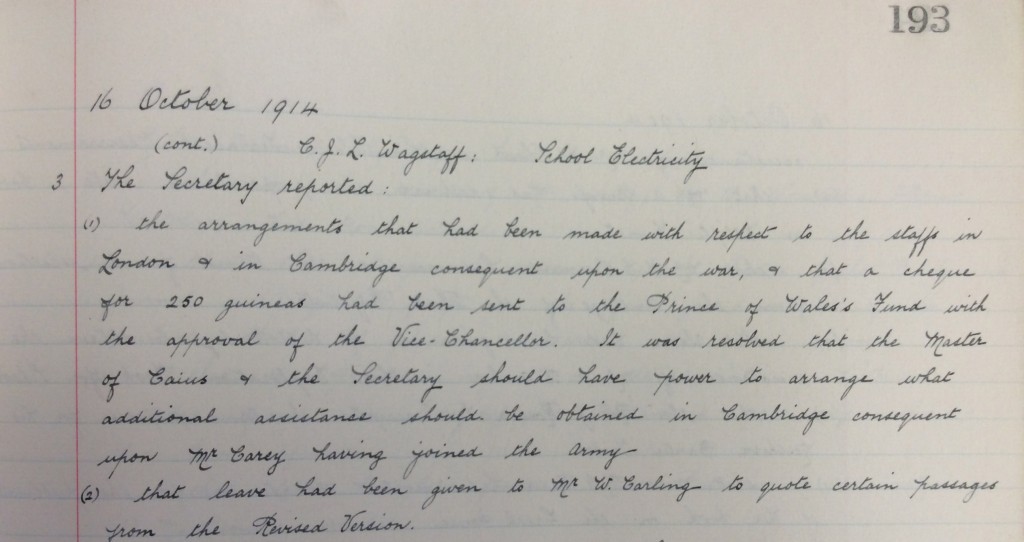 193
16 October 1914
(cont.) C. J. L. Wagstaff: School Electricity
3 The Secretary reported:
(1) the arrangements that had been made with respect to the staffs in
London & in Cambridge consequent upon the war, & that a cheque
for 250 guineas had been sent to the Prince of Wales's Fund with
the approval of the Vice-Chancellor. It was resolved that the Master
of Caius & the Secretary should have power to arrange what
additional assistance should be obtained in Cambridge consequent
upon Mr Carey having joined the army
(2) that leave had been given to Mr W. Carling to quote certain passages
from the Revised Version.